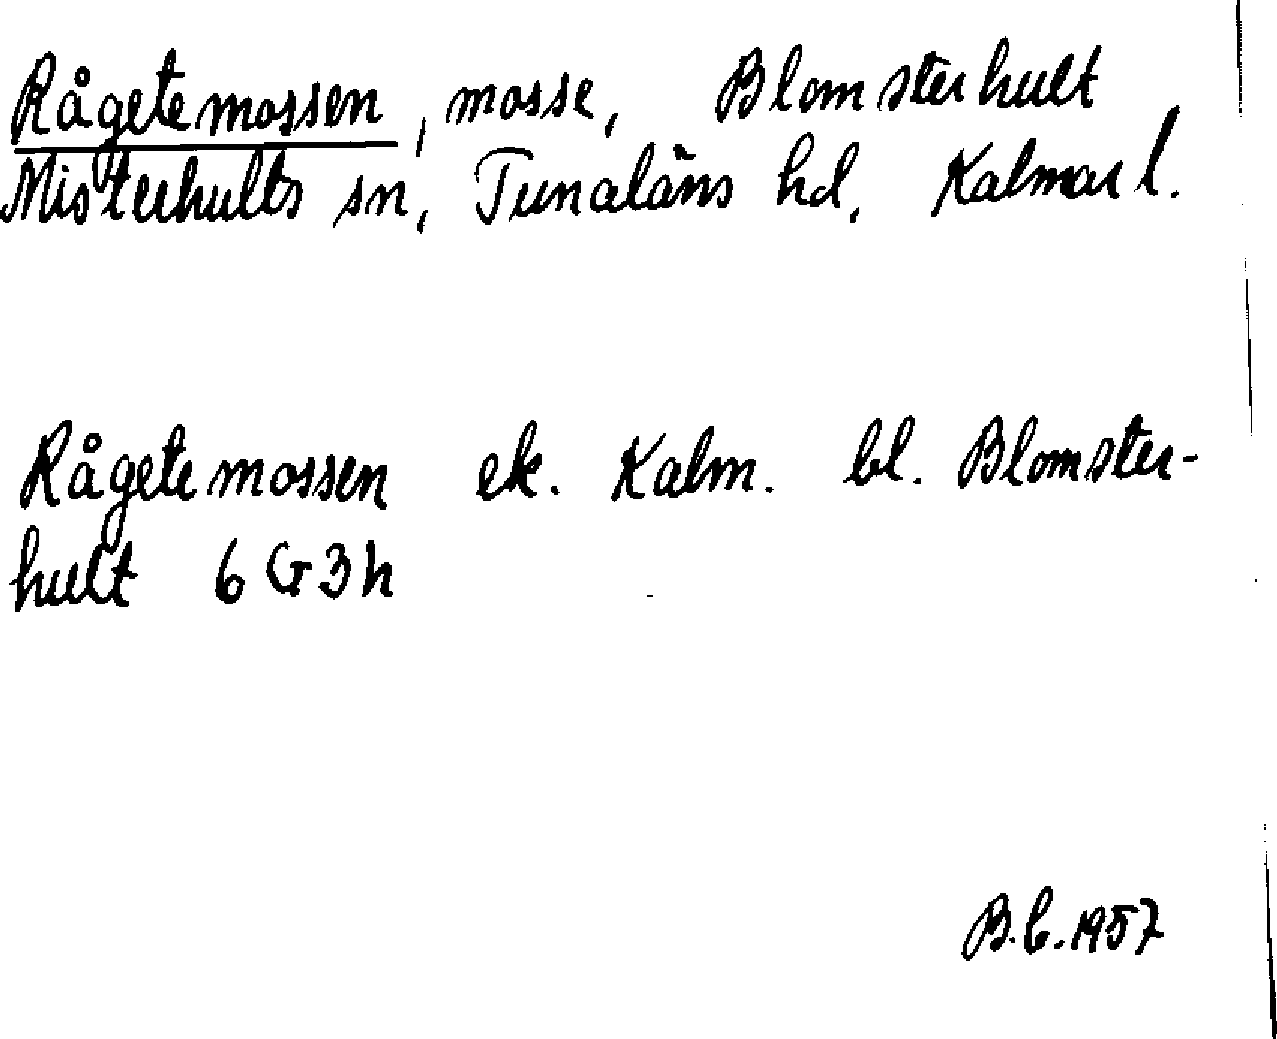 Rågetemossen, mosse, Blomsterhult
Misterhults sn, Tunaläns hd, Kalmar l.
Rågetemossen ek. Kalm. bl. Blomster-
hult 6G3h
B.C. 1957